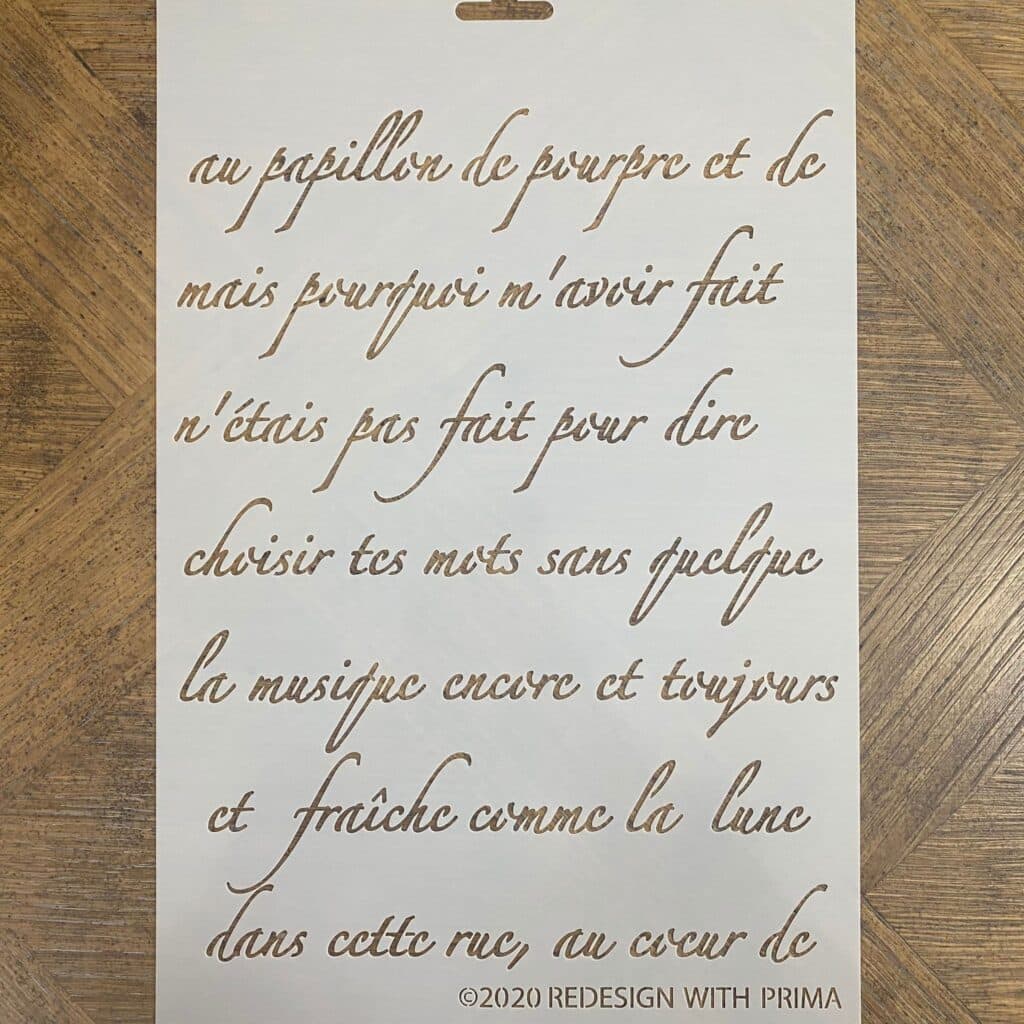 au papillon de pourpre et de
mais pourquoi m'avoir fait
n'étais pas fait pour dire
choisir tes mots sans quelque
la musique encore et toujours
et fraîche comme la lune
dans cette rue, au coeur de
©2020 REDESIGN WITH PRIMA